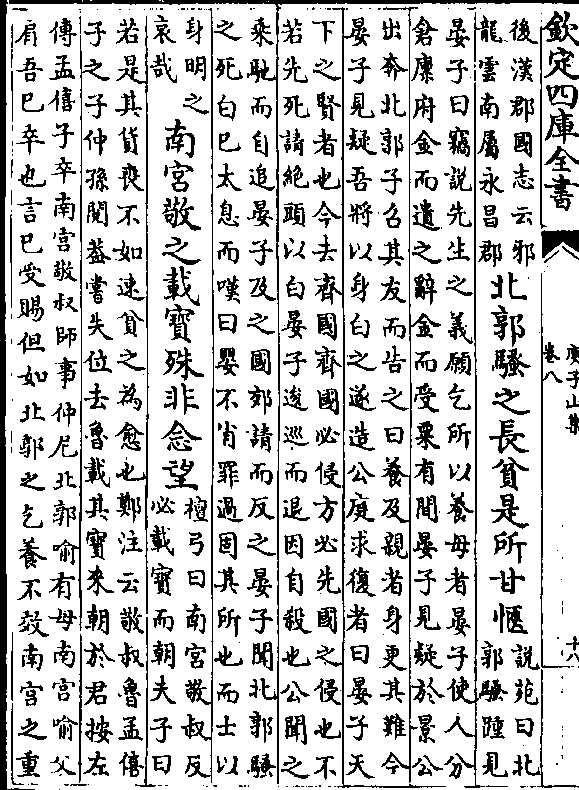 欽定四庫全書
庾子山集
卷八
十八
後漢郡國志云邪
龍雲南屬永昌郡
北郭騷之長貧是所甘愜
說苑曰北
郭騷踵見
晏子曰竊說先生之義願乞所以養母者晏子使人分
倉廩府金而遺之辭金而受粟有間晏子見疑於景公
出奔北郭子召其友而告之曰養及親者身更其難今
晏子見疑吾將以身白之遂造公庭求復者曰晏子天
下之賢者也今去齊國齊國必侵方必先國之侵也不
若先死請絕頭以白晏子逡巡而退因自殺也公聞之
乘馳而自追晏子及之國郊請而反之晏子聞北郭騷
之死白已太息而嘆曰嬰不肖罪過固其所也而士以
身明之
哀哉
南宮敬之載寶殊非念望
檀弓曰南宮敬叔反
必載寶而朝夫子曰
若是其貨喪不如速貧之為愈也鄭注云敬叔魯孟僖
子之子仲孫閱葢嘗失位去魯載其寶來朝於君按左
傳孟僖子卒南宮敬叔師事仲尼北郭喻有母南宮喻父
肩吾已卒也言已受賜但如北郭之乞養不效南宮之重